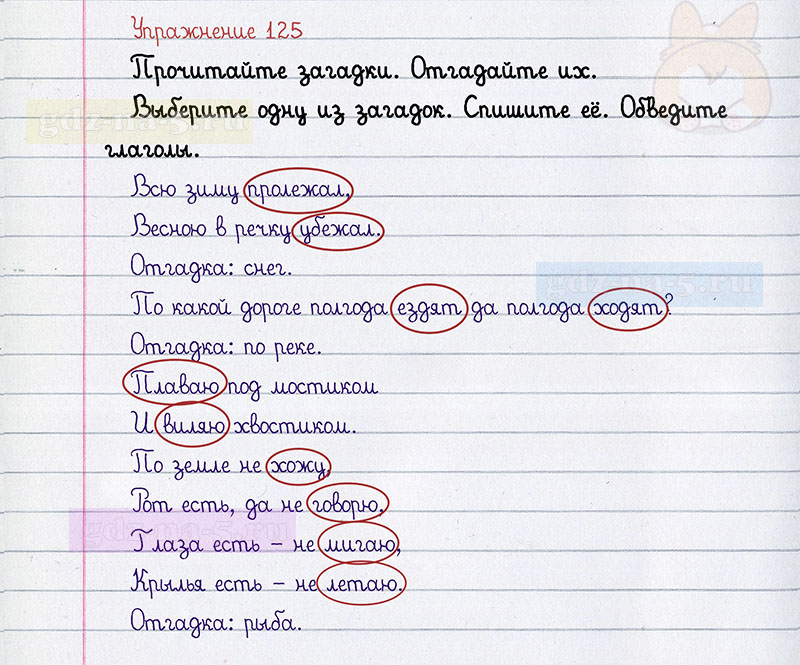 Упражнение 125
Прочитайте загадки. Отгадайте их.
Выберите одну из загадок. Спишите её. Обведите
глаголы.
gdz-na-5.ru
Всю зиму пролежал,
Весною в речку убежал.
Отгадка: снег.
gdz-na-5.ru
По какой дороге полгода ездят да полгода ходят?
Отгадка: по реке.
Плаваю под мостиком
И виляю хвостиком.
По земле не хожу,
Рот есть, да не говорю,
gdz-na-5.ru
Глаза есть – не мигаю,
Крылья есть – не летаю.
Отгадка: рыба.